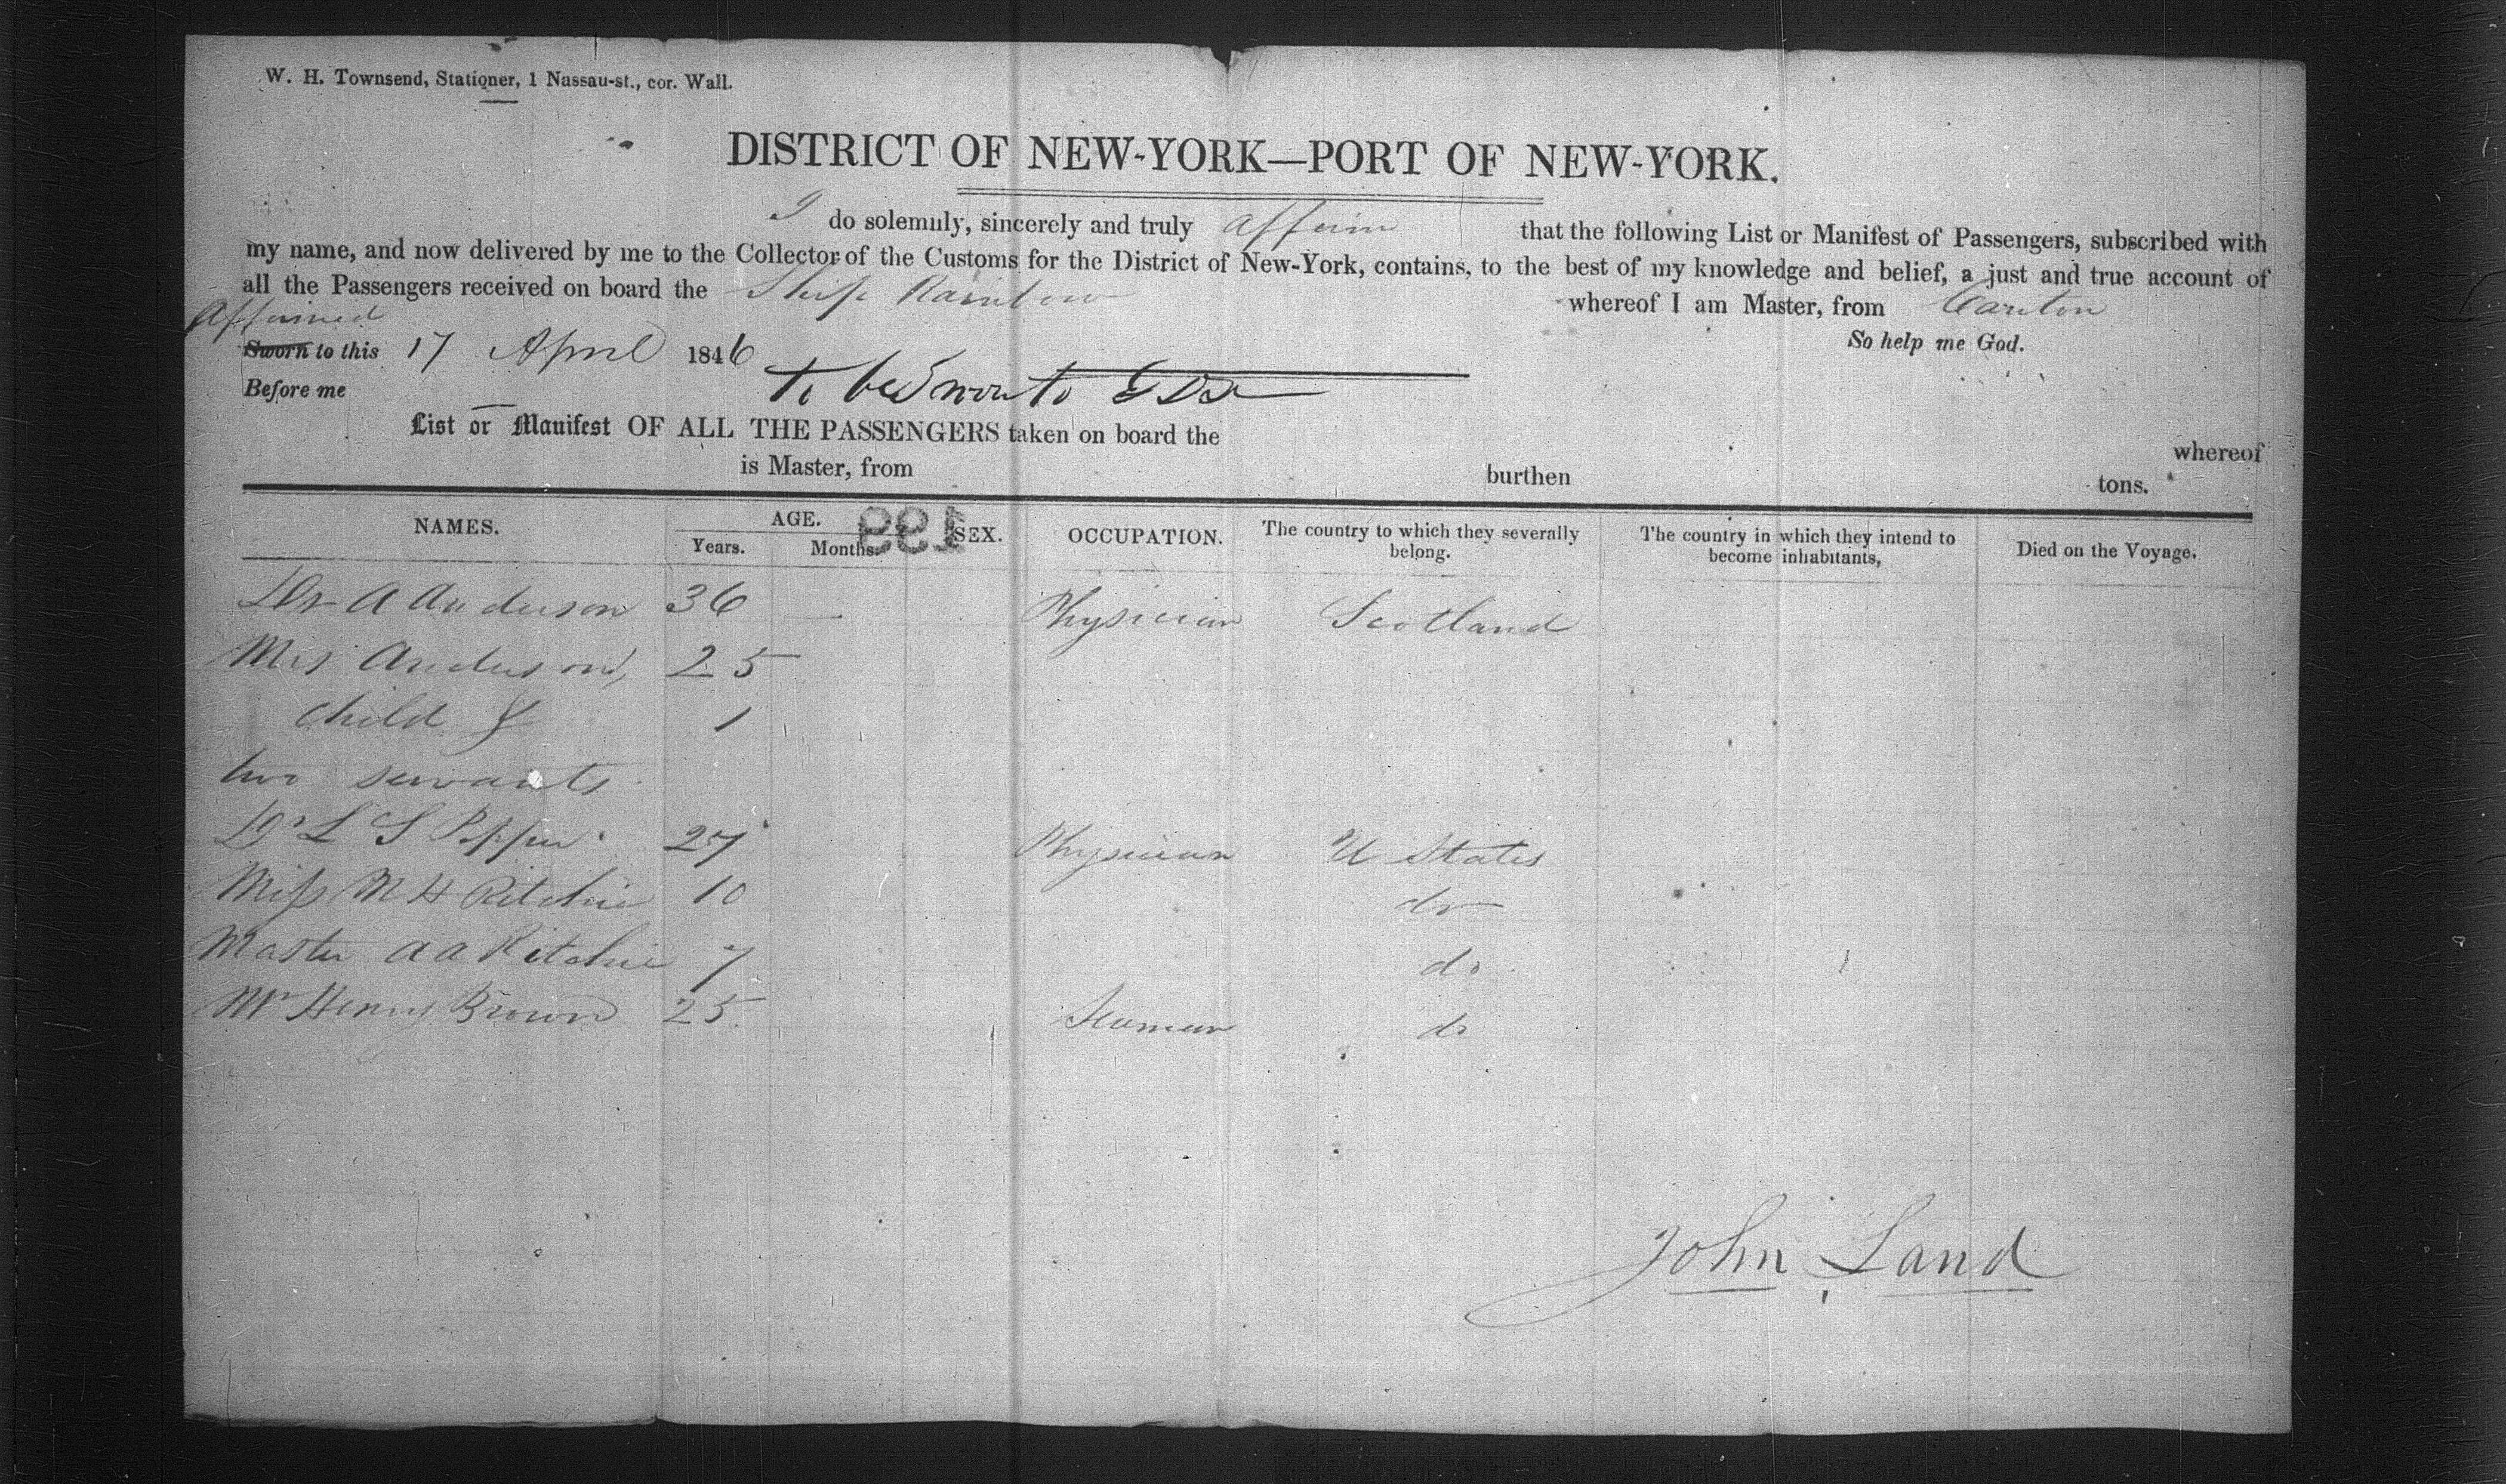 W. H. Townsend, Stationer, 1 Nassau-st., cor. Wall.
DISTRICT OF NEW-YORK—PORT OF NEW-YORK.
I do solemnly, sincerely and truly affirm that the following List or Manifest of Passengers, subscribed with
my name, and now delivered by me to the Collector of the Customs for the District of New-York, contains, to the best of my knowledge and belief, a just and true account of
all the Passengers received on board the Ship Rainbow whereof I am Master, from Canton
Affirmed
Sworn to this 17 April 1846 So help me God.
Before me to be Sworn to
List or Manifest OF ALL THE PASSENGERS taken on board the whereof
is Master, from burthen tons.
NAMES. AGE. Years. Months. 199 SEX. OCCUPATION. The country to which they severally belong. The country in which they intend to become inhabitants, Died on the Voyage.
Dr A Anderson 36 - Physician Scotland
Mrs Anderson, 25
child & 1
two servants
Dr L S Pepper 27 Physician U States
Miss M H Ritchie 10 do
Master A A Ritchie 7 do
Mr Henry Brown 25 Seaman do
John Land